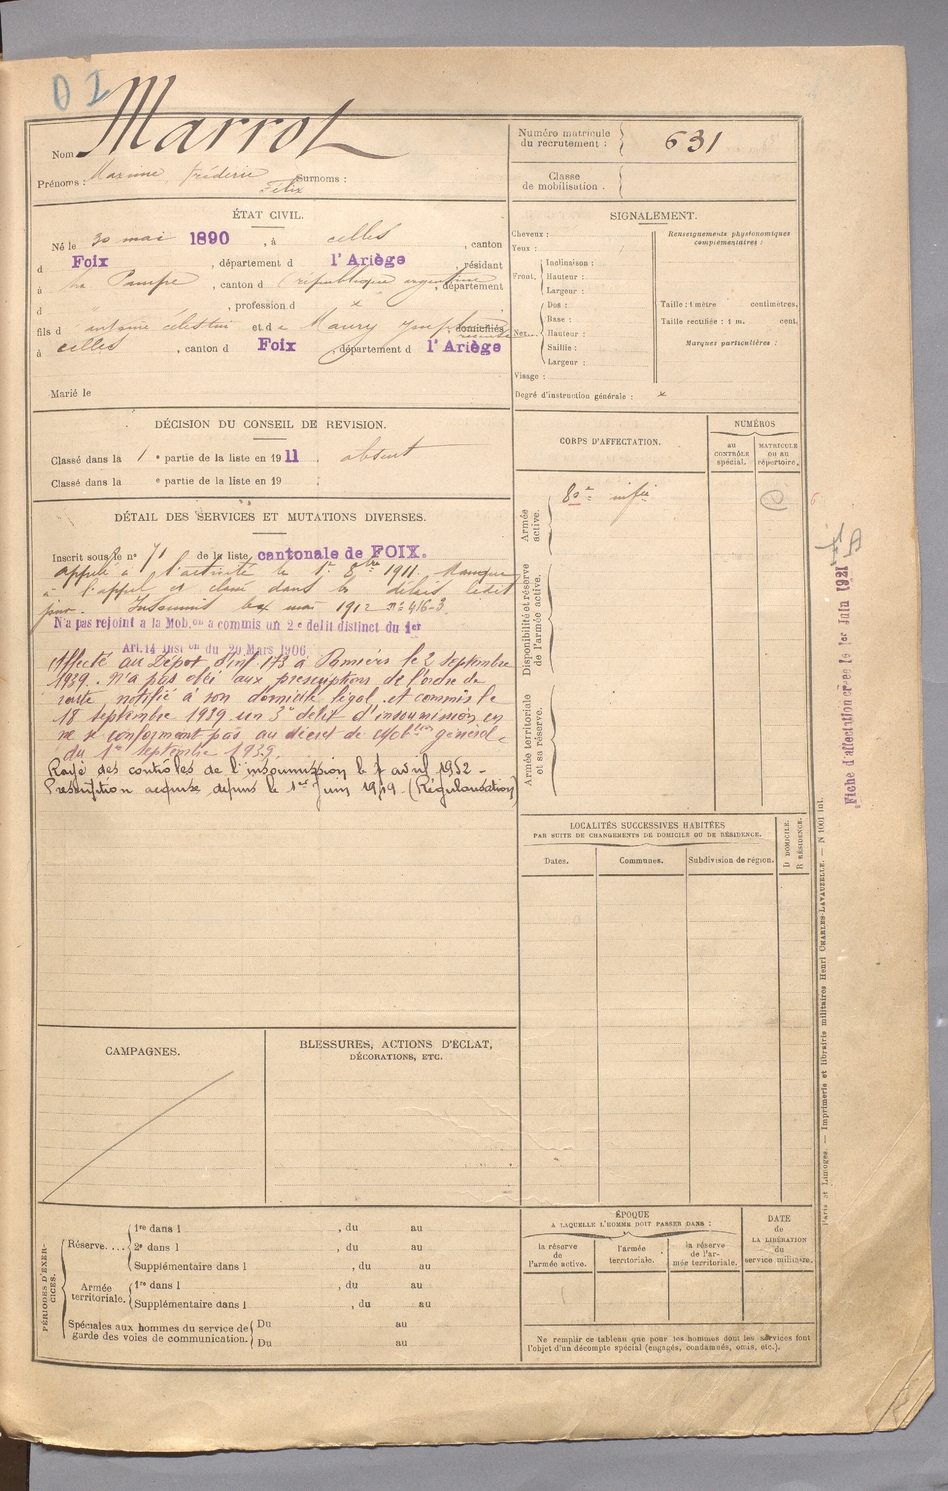 D I
Nom Marrot
Prénoms : Maxime, Fréderic Surnoms :
Félix
Numéro matricule
du recrutement : 631
Classe
de mobilisation.
ÉTAT CIVIL.
Né le 30 mai 1890, à celles, canton
d Foix, département d l'Ariège, résidant
à La Pampa, canton d (république argentine, département
d , profession d x
fils d antoine célestin et de Maury , domiciliés
à celles, canton d Foix, département d l'Ariège
Marié le
SIGNALEMENT.
Cheveux :
Yeux :
Front. Inclinaison :
Hauteur :
Largeur :
Nez. Dos :
Base :
Hauteur :
Saillie :
Largeur :
Visage :
Renseignements physionomiques
complémentaires :
Taille : 1 mètre centimètres.
Taille rectifiée : 1 m. cent.
Marques particulières :
Degré d'instruction générale : x
DÉCISION DU CONSEIL DE REVISION.
Classé dans la 1 e partie de la liste en 1911. absent
Classé dans la e partie de la liste en 19 .
DÉTAIL DES SERVICES ET MUTATIONS DIVERSES.
Inscrit sous le n° 71 de la liste cantonale de FOIX.
appelé à l'activité le 1er 8bre 1911. Manque
à l'appel et classé dans les délais ledit
jour. Insoumis le mai 1912 n° 416-3
N'a pas rejoint a la Mob.on a commis un 2e delit distinct du 1er
Art.14 Inst on du 20 Mars 1906
Affecté au Dépôt d'inf 173 à Pamiers le 2 septembre
1939. N'a pas obéi aux prescriptions de l'ordre de
route notifié à son domicile légal et commis le
18 septembre 1939 un 3e délit d'insoumission en
ne se conformant pas au décret de Mobtion générale
du 1er septembre 1939
Rayé des contrôles de l'insoumission le 7 avril 1952 -
Prescription acquise depuis le 1er Juin 1949 - (Régularisation)
CORPS D'AFFECTATION.
NUMÉROS
au
CONTRÔLE
spécial.
MATRICULE
ou au
répertoire.
Armée
active.
80e infie
Disponibilité et réserve
de l'armée active.
Armée territoriale
et sa réserve.
Fiche d'affectation créée le 1er Juin 1921
LOCALITÉS SUCCESSIVES HABITÉES
PAR SUITE DE CHANGEMENTS DE DOMICILE OU DE RÉSIDENCE.
Dates.
Communes.
Subdivision de région.
D DOMICILE.
R RÉSIDENCE.
CAMPAGNES.
BLESSURES, ACTIONS D'ÉCLAT,
DÉCORATIONS, ETC.
PÉRIODES D'EXER-
CICES.
Réserve.... 1re dans l , du au
2e dans l , du au
Supplémentaire dans l , du au
Armée
territoriale. 1re dans l , du au
Supplémentaire dans l , du au
Spéciales aux hommes du service de
garde des voies de communication. Du au
Du au
ÉPOQUE
A LAQUELLE L'HOMME DOIT PASSER DANS :
la réserve
de
l'armée active.
l'armée
territoriale.
la réserve
de l'ar-
mée territoriale.
DATE
de
LA LIBÉRATION
du
service militaire.
Ne remplir ce tableau que pour les hommes dont les services font
l'objet d'un décompte spécial (engagés, condamnés, omis, etc.).
Paris et Limoges. — Imprimerie et librairie militaires Henri CHARLES-LAVAUZELLE. — N 1001 int.